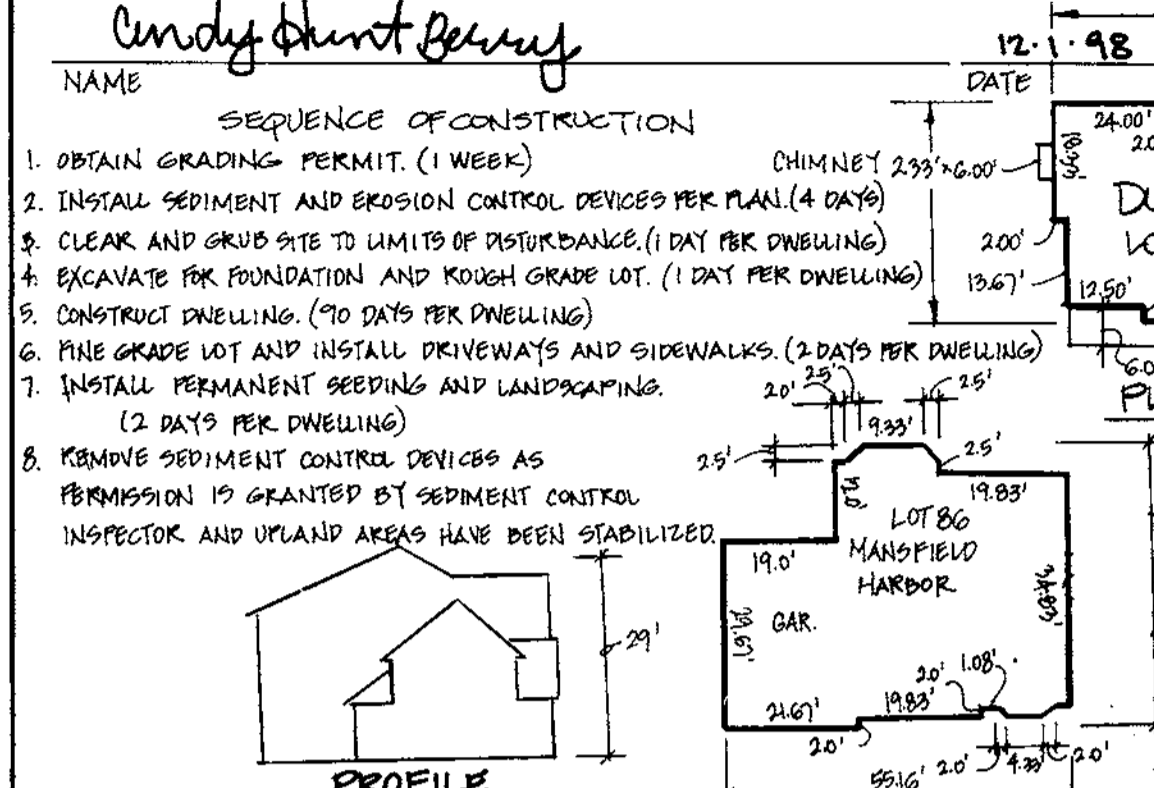 Cindy Hunt Berry
12·1·98
NAME
DATE
SEQUENCE OF CONSTRUCTION
1. OBTAIN GRADING PERMIT. (1 WEEK)
2. INSTALL SEDIMENT AND EROSION CONTROL DEVICES PER PLAN. (4 DAYS)
3. CLEAR AND GRUB SITE TO LIMITS OF DISTURBANCE. (1 DAY PER DWELLING)
4. EXCAVATE FOR FOUNDATION AND ROUGH GRADE LOT. (1 DAY PER DWELLING)
5. CONSTRUCT DWELLING. (90 DAYS PER DWELLING)
6. FINE GRADE LOT AND INSTALL DRIVEWAYS AND SIDEWALKS. (2 DAYS PER DWELLING)
7. INSTALL PERMANENT SEEDING AND LANDSCAPING.
(2 DAYS PER DWELLING)
8. REMOVE SEDIMENT CONTROL DEVICES AS
PERMISSION IS GRANTED BY SEDIMENT CONTROL
INSPECTOR AND UPLAND AREAS HAVE BEEN STABILIZED.
24.00'
2.0
18.33'
CHIMNEY 2.33'x6.00'
2.00'
13.67'
12.50'
6.0
2.0'
2.5'
2.5'
9.33'
2.5'
2.5'
12.0'
19.83'
LOT 86
MANSFIELD
HARBOR
19.0'
34.83'
29.67'
GAR.
2.0'
1.08'
21.67'
19.83'
2.0'
55.16'
2.0'
4.33'
2.0'
29'
PROFILE